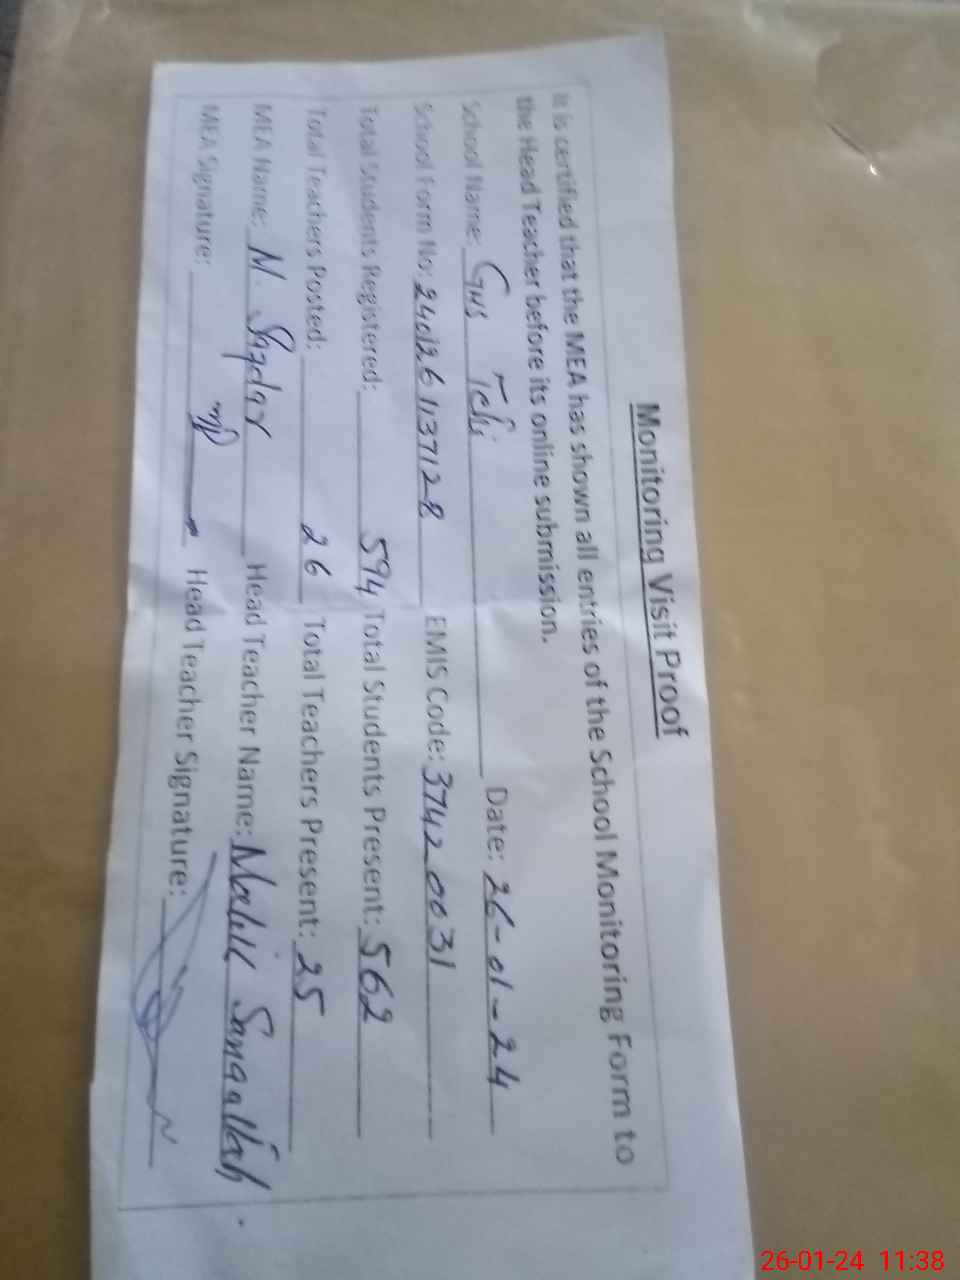 Monitoring Visit Proof
It is certified that the MEA has shown all entries of the School Monitoring Form to
the Head Teacher before its online submission.
School Name: GHS Tehi Date: 26-01-24
School Form No: 2401261137128 EMIS Code: 37420031
Total Students Registered: 594 Total Students Present: 562
Total Teachers Posted: 26 Total Teachers Present: 25
MEA Name: M. Safdar Head Teacher Name: Malik Sanaullah
MEA Signature: Head Teacher Signature:
26-01-24 11:38